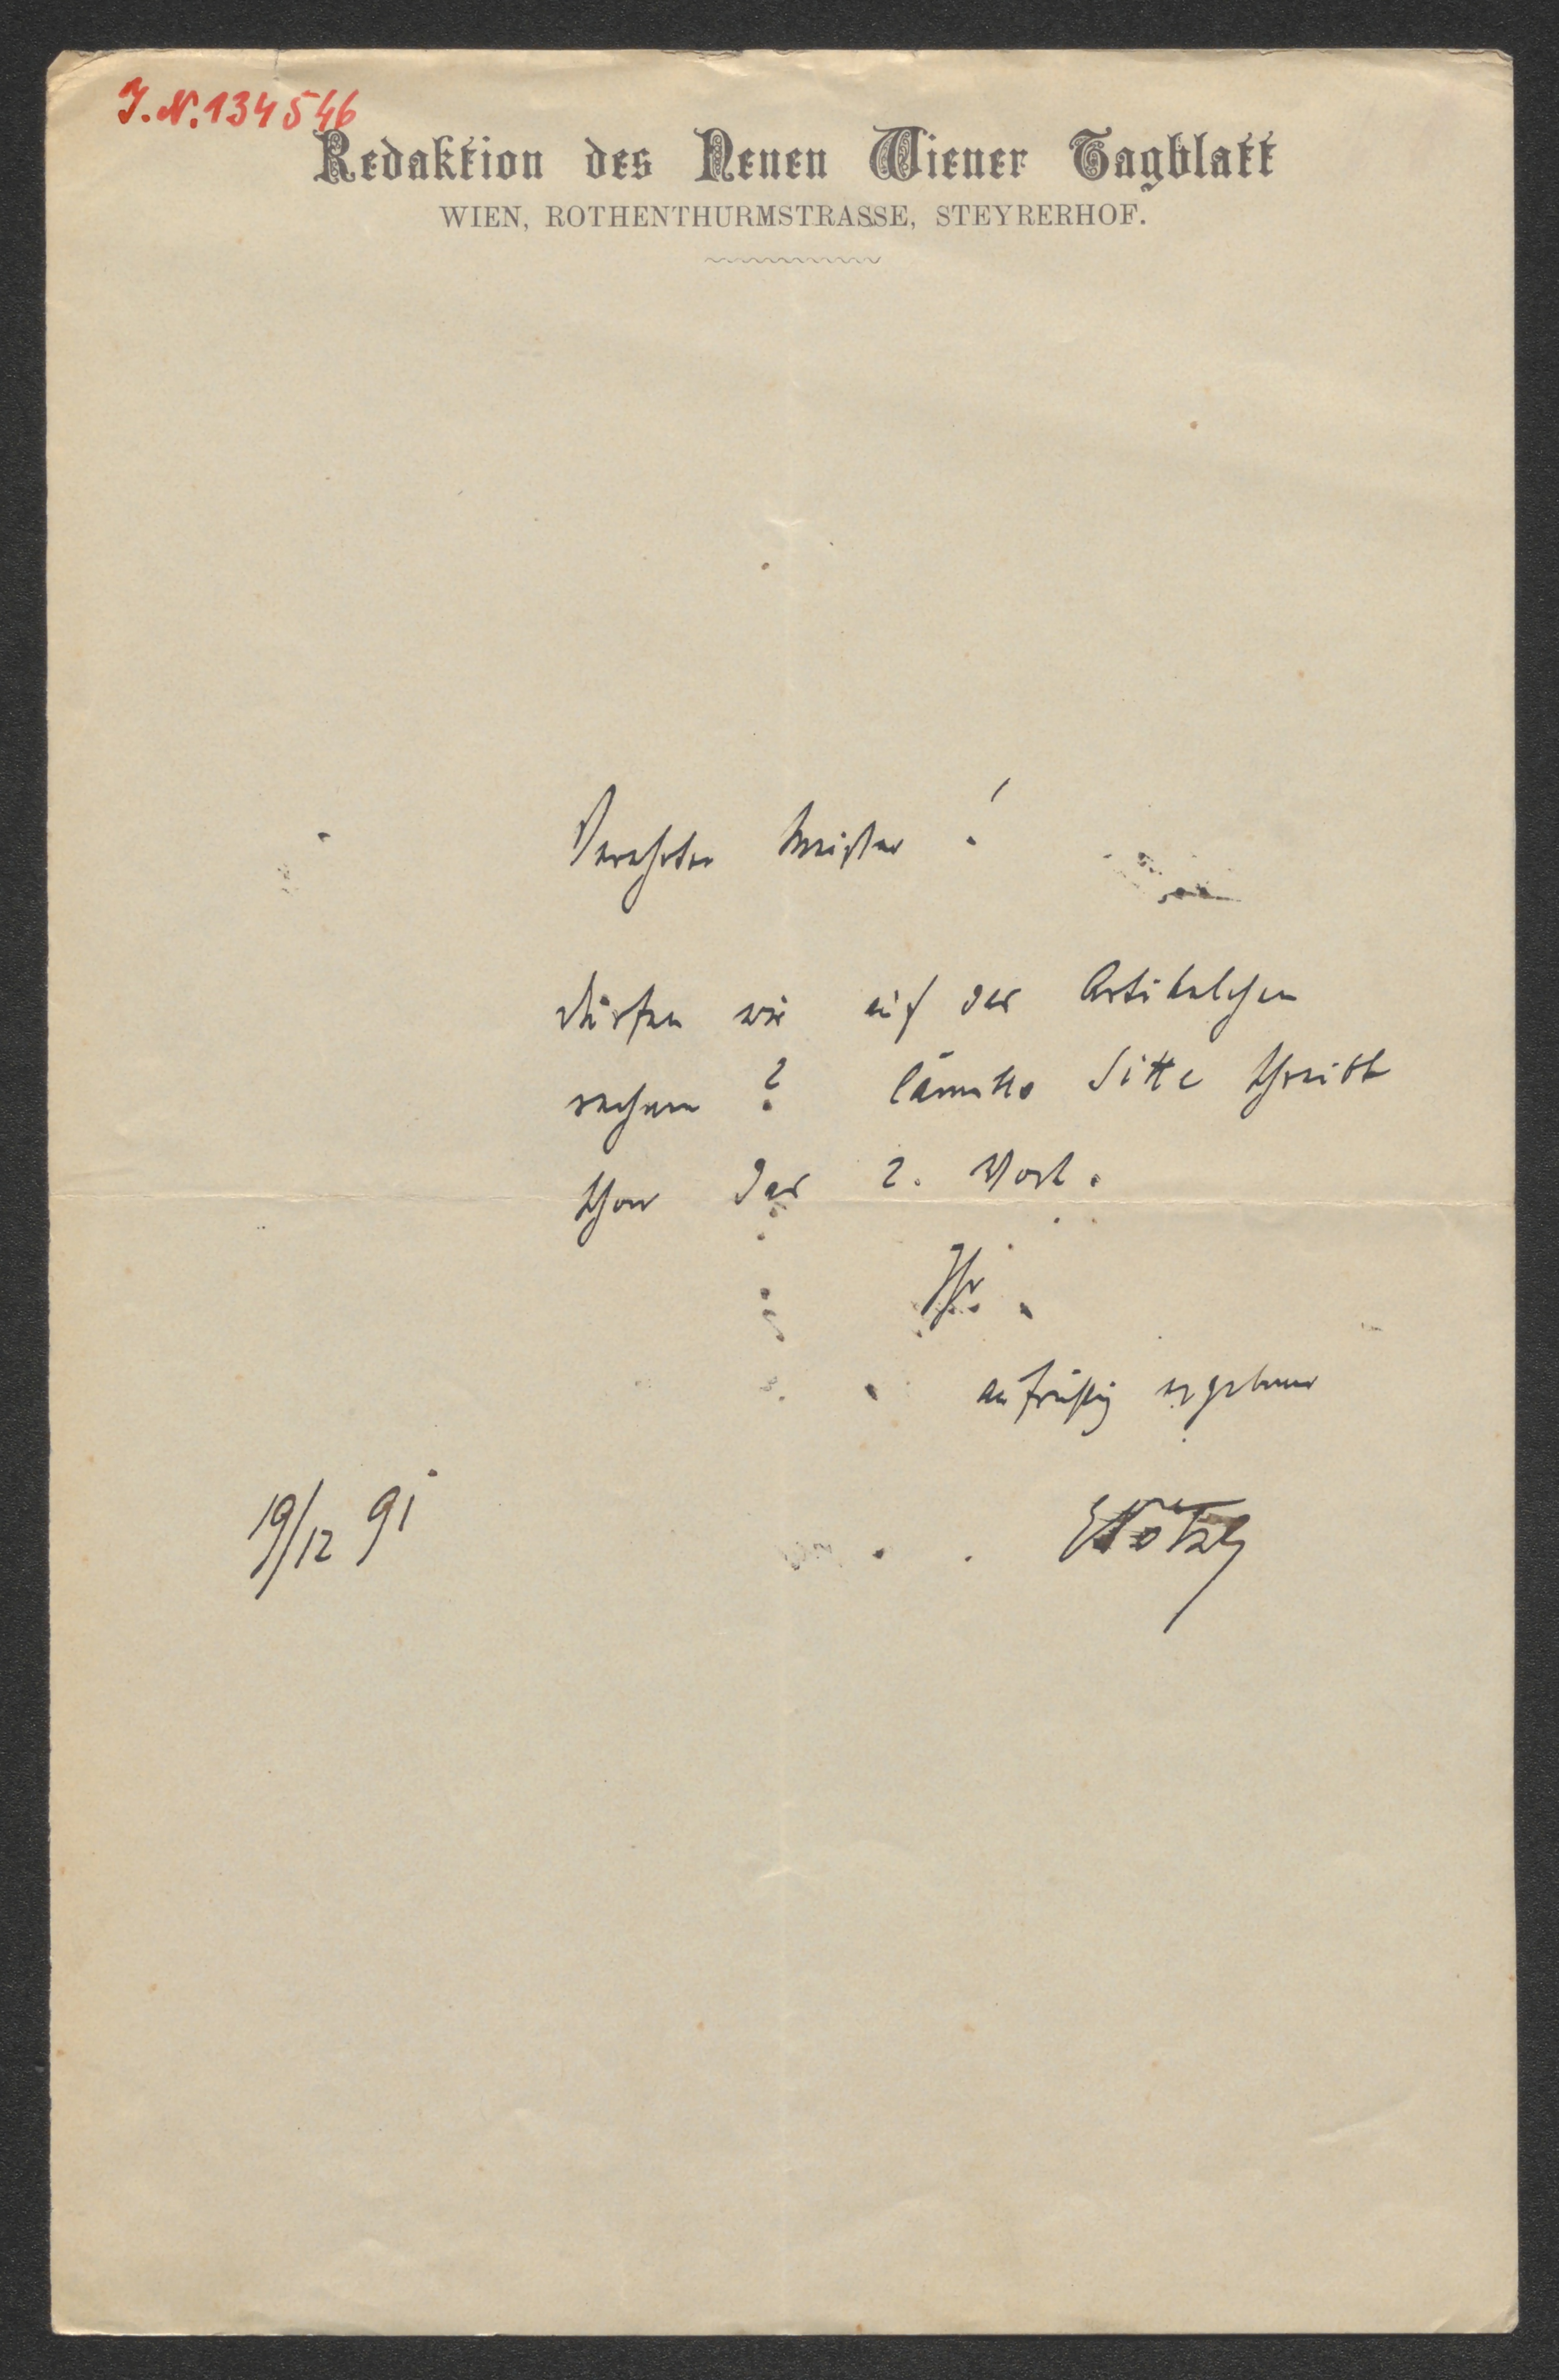 J.N. 134546
Redaktion des Neuen Wiener Tagblatt
WIEN, ROTHENTHURMSTRASSE, STEYRERHOF.
Verehrter Meister!
dürfen wir auf das Artikelchen
rechnen? Camillo Sitte schreibt
schon das 2. Wort.
Ihr
aufrichtig ergebener
19/12 91
EPötzl